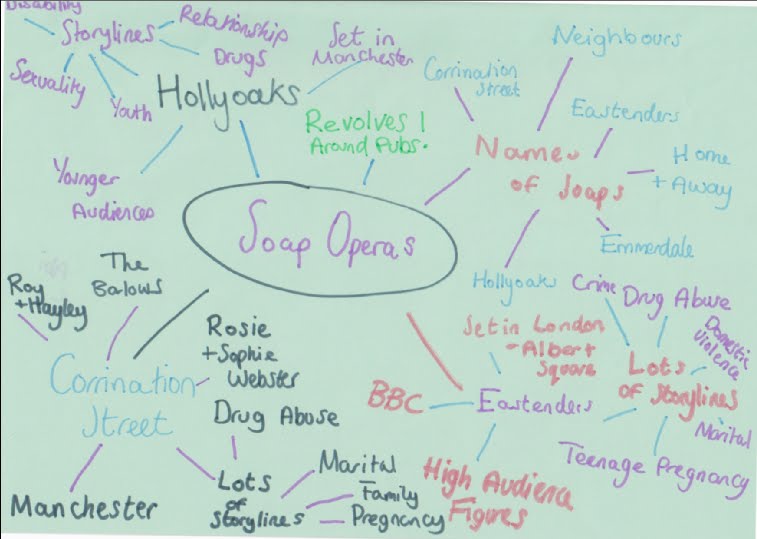 Disability
Storylines
Relationship
Drugs
Sexuality
Youth
Hollyoaks
Set in
Manchester
Younger
Audiences
Revolves
Around Pubs.
Soap Operas
Names
of Soaps
Corrination
Street
Neighbours
Eastenders
Home
+ Away
Emmerdale
Hollyoaks
Roy
+ Hayley
The
Barlows
Rosie
+ Sophie
Webster
Corrination
Street
Manchester
Lots
of
Storylines
Drug Abuse
Marital
Family
Pregnancy
Set in London
- Albert
Square
BBC
Eastenders
High Audience
Figures
Lots
of Storylines
Crime
Drug Abuse
Domestic
Violence
Marital
Teenage Pregnancy